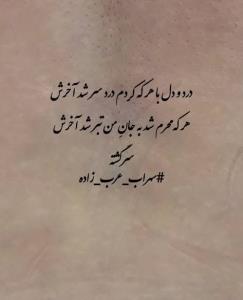 درد و دل با هر که کردم درد سر شد آخرش
هر که محرم شد به جانِ من تبر شد آخرش
سرگشته
#سهراب_عرب_زاده